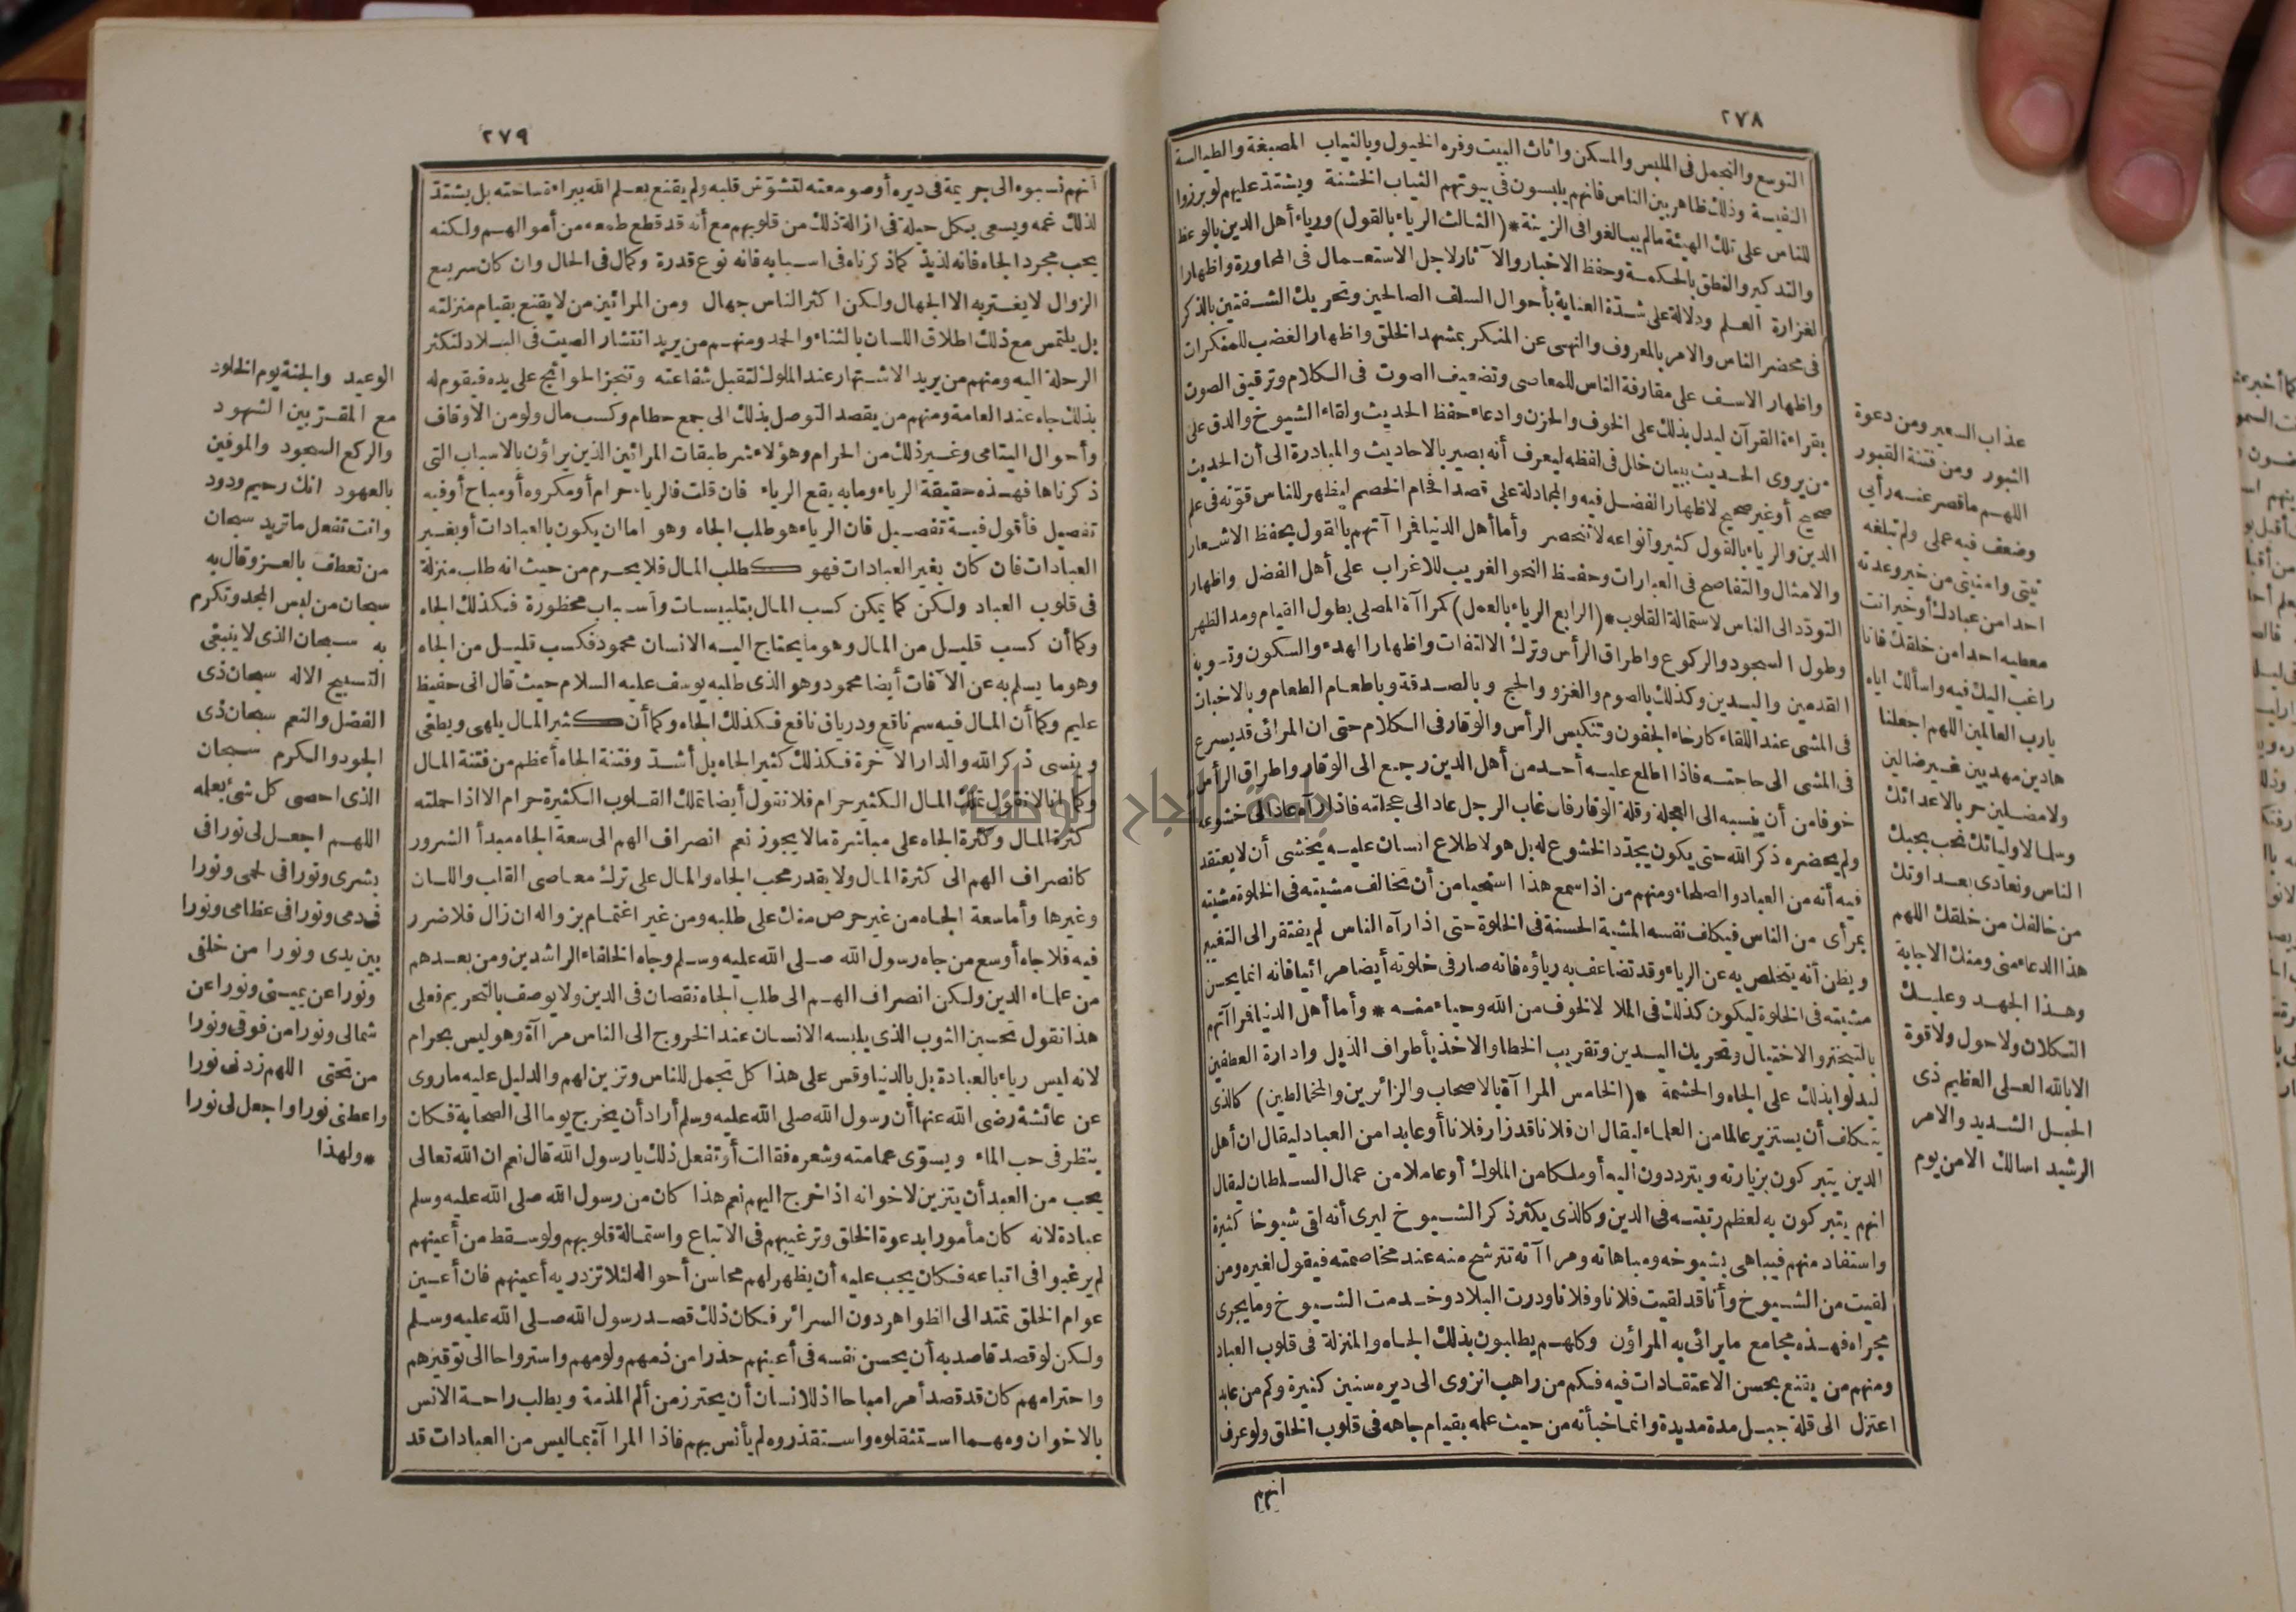 ٢٧٨
التوسع والتجمل فى الملبس والمسكن واثاث البيت وفره الخيول وبالثياب المصبغة والطيالسة
النفيسة وذلك ظاهر بين الناس فانهم يلبسون فى بيوتهم الثياب الخشنة ويشتد عليهم لو برزوا
للناس على تلك الهيئة مالم يبالغوا فى الزينة * (الثالث الرياء بالقول) ورياء أهل الدين بالوعظ
والتذكير والنطق بالحكمة وحفظ الاخبار والآثار لاجل الاستعمال فى المحاورة واظهارا
لغزارة العلم ودلالة على شدّة العناية بأحوال السلف الصالحين وتحريك الشفتين بالذكر
فى محضر الناس والامر بالمعروف والنهى عن المنكر بمشهد الخلق واظهار الغضب للمنكرات
واظهار الاسف على مقارفة الناس للمعاصى وتضعيف الصوت فى الكلام وترقيق الصوت
بقراءة القرآن ليدل بذلك على الخوف والحزن وادعاء حفظ الحديث ولقاء الشيوخ والدق على
من يروى الحديث ببيان خلل فى لفظه ليعرف أنه بصير بالاحاديث والمبادرة الى أن الحديث
صحيح أوغير صحيح لاظهار الفضل فيه والمجادلة على قصد افحام الخصم ليظهر للناس قوّته فى علم
الدين والرياء بالقول كثير وأنواعه لا تنحصر وأما أهل الدنيا فمراآتهم بالقول بحفظ الاشعار
والامثال والتفاصح فى العبارات وحفظ النحو الغريب للاغراب على أهل الفضل واظهار
التودّد الى الناس لاستمالة القلوب * (الرابع الرياء بالعمل) كمراآة المصلى بطول القيام ومد الظهر
وطول السجود والركوع واطراق الرأس وترك الالتفات واظهار الهدء والسكون وتسوية
القدمين واليدين وكذلك بالصوم والغزو والحج وبالصدقة وباطعام الطعام وبالاخبات
فى المشى عند اللقاء كارخاء الجفون وتنكيس الرأس والوقار فى الكلام حتى ان المرائى قد يسرع
فى المشى الى حاجته فاذا اطلع عليه أحد من أهل الدين رجع الى الوقار واطراق الرأس
خوفا من أن ينسبه الى العجلة وقلة الوقار فان غاب الرجل عاد الى عجلته فاذا رآه عاد الى خشوعه
ولم يحضره ذكر الله حتى يكون يجدّد الخشوع له بل هو لاطلاع انسان عليه يخشى أن لا يعتقد
فيه أنه من العباد والصلحاء ومنهم من اذا سمع هذا استحيا من أن تخالف مشيته فى الخلوة مشيته
بمرأى من الناس فيكلف نفسه المشية الحسنة فى الخلوة حتى اذا رآه الناس لم يفتقر الى التغيير
ويظن أنه يتخلص به عن الرياء وقد تضاعف به رياؤه فانه صار فى خلوته أيضا مرائيا فانه انما يحسن
مشيته فى الخلوة ليكون كذلك فى الملا لا لخوف من الله وحياء منه * وأما أهل الدنيا فمراآتهم
بالتبختر والاختيال وتحريك اليدين وتقريب الخطا والاخذ بأطراف الذيل وادارة العطفين
ليدلوا بذلك على الجاه والحشمة * (الخامس المراآة بالاصحاب والزائرين والمخالطين) كالذى
يتكلف أن يستزير عالما من العلماء ليقال ان فلانا قد زار فلانا أو عابدا من العباد ليقال ان أهل
الدين يتبركون بزيارته ويترددون اليه أو ملكا من الملوك أو عاملا من عمال السلطان ليقال
انهم يتبركون به لعظم رتبته فى الدين وكالذى يكثر ذكر الشيوخ ليرى أنه لقى شيوخا كثيرة
واستفاد منهم فيباهى بشيوخه ومباهاته ومراآته تترشح منه عند مخاصمته فيقول لغيره ومن
لقيت من الشيوخ وأنا قد لقيت فلانا وفلانا ودرت البلاد وخدمت الشيوخ وما يجرى
مجراه فهذه مجامع ما يرائى به المراؤن وكلهم يطلبون بذلك الجاه والمنزلة فى قلوب العباد
ومنهم من يقنع بحسن الاعتقادات فيه فكم من راهب انزوى الى ديره سنين كثيرة وكم من عابد
اعتزل الى قلة جبل مدة مديدة وانما خبأته من حيث علمه بقيام جاهه فى قلوب الخلق ولو عرف
انهم
عذاب السعير ومن دعوة
الثبور ومن فتنة القبور
اللهم ما قصر عنه رأيى
وضعف فيه عملى ولم تبلغه
نيتى وامنيتى من خير وعدته
احدا من عبادك أو خير انت
معطيه احدا من خلقك فانا
راغب اليك فيه واسألك اياه
يارب العالمين اللهم اجعلنا
هادين مهديين غير ضالين
ولا مضلين حربا لاعدائك
وسلما لاوليائك نحب بحبك
الناس ونعادى بعداوتك
من خالفك من خلقك اللهم
هذا الدعاء منى ومنك الاجابة
وهذا الجهد وعليك
التكلان ولا حول ولا قوة
الا بالله العلى العظيم ذى
الحبل الشديد والامر
الرشيد اسالك الامن يوم
٢٧٩
انهم نسبوه الى جريمة فى ديره أو صومعته لتشوّش قلبه ولم يقنع بعلم الله ببراءة ساحته بل يشتد
لذلك غمه ويسعى بكل حيلة فى ازالة ذلك من قلوبهم مع أنه قد قطع طمعه من أموالهم ولكنه
يحب مجرد الجاه فانه لذيذ كما ذكرناه فى اسبابه فانه نوع قدرة وكمال فى الحال وان كان سريع
الزوال لا يغتر به الا الجهال ولكن اكثر الناس جهال ومن المرائين من لا يقنع بقيام منزلته
بل يلتمس مع ذلك اطلاق اللسان بالثناء والحمد ومنهم من يريد انتشار الصيت فى البلاد لتكثر
الرحلة اليه ومنهم من يريد الاشتهار عند الملوك لتقبل شفاعته وتنجز الحوائج على يده فيقوم له
بذلك جاه عند العامة ومنهم من يقصد التوصل بذلك الى جمع حطام وكسب مال ولو من الأوقاف
وأموال اليتامى وغير ذلك من الحرام وهؤلاء شر طبقات المرائين الذين يراؤن بالاسباب التى
ذكرناها فهذه حقيقة الرياء وما به يقع الرياء فان قلت فالرياء حرام أو مكروه أو مباح أو فيه
تفصيل فأقول فيه تفصيل فان الرياء هو طلب الجاه وهو اما ان يكون بالعبادات أو بغير
العبادات فان كان بغير العبادات فهو كطلب المال فلا يحرم من حيث انه طلب منزلة
فى قلوب العباد ولكن كما يمكن كسب المال بتلبيسات وأسباب محظورة فكذلك الجاه
وكما أن كسب قليل من المال وهو ما يحتاج اليه الانسان محمود فكسب قليل من الجاه
وهو ما يسلم به عن الآفات أيضا محمود وهو الذى طلبه يوسف عليه السلام حيث قال انى حفيظ
عليم وكما أن المال فيه سم ناقع ودرياق نافع فكذلك الجاه وكما أن كثير المال يلهى ويطغى
وينسى ذكر الله والدار الآخرة فكذلك كثير الجاه بل أشد وفتنة الجاه أعظم من فتنة المال
وكما انا لا نقول تملك المال الكثير حرام فلا نقول أيضا تملك القلوب الكثيرة حرام الا اذا حملته
كثرة المال وكثرة الجاه على مباشرة ما لا يجوز نعم انصراف الهم الى سعة الجاه مبدأ الشرور
كانصراف الهم الى كثرة المال ولا يقدر محب الجاه والمال على ترك معاصى القلب واللسان
وغيرها وأما سعة الجاه من غير حرص منك على طلبه ومن غير اغتمام بزواله ان زال فلا ضرر
فيه فلا جاه أوسع من جاه رسول الله صلى الله عليه وسلم وجاه الخلفاء الراشدين ومن بعدهم
من علماء الدين ولكن انصراف الهم الى طلب الجاه نقصان فى الدين ولا يوصف بالتحريم فعلى
هذا نقول تحسين الثوب الذى يلبسه الانسان عند الخروج الى الناس مراآة وهو ليس بحرام
لانه ليس رياء بالعبادة بل بالدنيا وقس على هذا كل تجمل للناس وتزين لهم والدليل عليه ما روى
عن عائشة رضى الله عنها أن رسول الله صلى الله عليه وسلم أراد أن يخرج يوما الى الصحابة فكان
ينظر فى حب الماء ويسوّى عمامته وشعره فقالت أوتفعل ذلك يا رسول الله قال نعم ان الله تعالى
يحب من العبد أن يتزين لاخوانه اذا خرج اليهم نعم هذا كان من رسول الله صلى الله عليه وسلم
عبادة لانه كان مأمورا بدعوة الخلق وترغيبهم فى الاتباع واستمالة قلوبهم ولو سقط من أعينهم
لم يرغبوا فى اتباعه فكان يجب عليه أن يظهر لهم محاسن أحواله لئلا تزدريه أعينهم فان أعين
عوام الخلق تمتد الى الظواهر دون السرائر فكان ذلك قصد رسول الله صلى الله عليه وسلم
ولكن لو قصد قاصد به أن يحسن نفسه فى أعينهم حذرا من ذمهم ولومهم واسترواحا الى توقيرهم
واحترامهم كان قد قصد أمرا مباحا اذ للانسان أن يحترز من ألم المذمة ويطلب راحة الانس
بالاخوان ومهما استثقلوه واستقذروه لم يأنس بهم فاذا المراآة بما ليس من العبادات قد
الوعيد والجنة يوم الخلود
مع المقرّبين الشهود
والركع السجود والموفين
بالعهود انك رحيم ودود
وانت تفعل ما تريد سبحان
من تعطف بالعز وقال به
سبحان من لبس المجد وتكرم
به سبحان الذى لا ينبغى
التسبيح الا له سبحان ذى
الفضل والنعم سبحان ذى
الجود والكرم سبحان
الذى احصى كل شئ بعلمه
اللهم اجعل لى نورا فى
بشرى ونورا فى لحمى ونورا
فى دمى ونورا فى عظامى ونورا
بين يدى ونورا من خلفى
ونورا عن يمينى ونورا عن
شمالى ونورا من فوقى ونورا
من تحتى اللهم زدنى نورا
واعطنى نورا واجعل لى نورا
* ولهذا
جامعة النجاح الوطنية